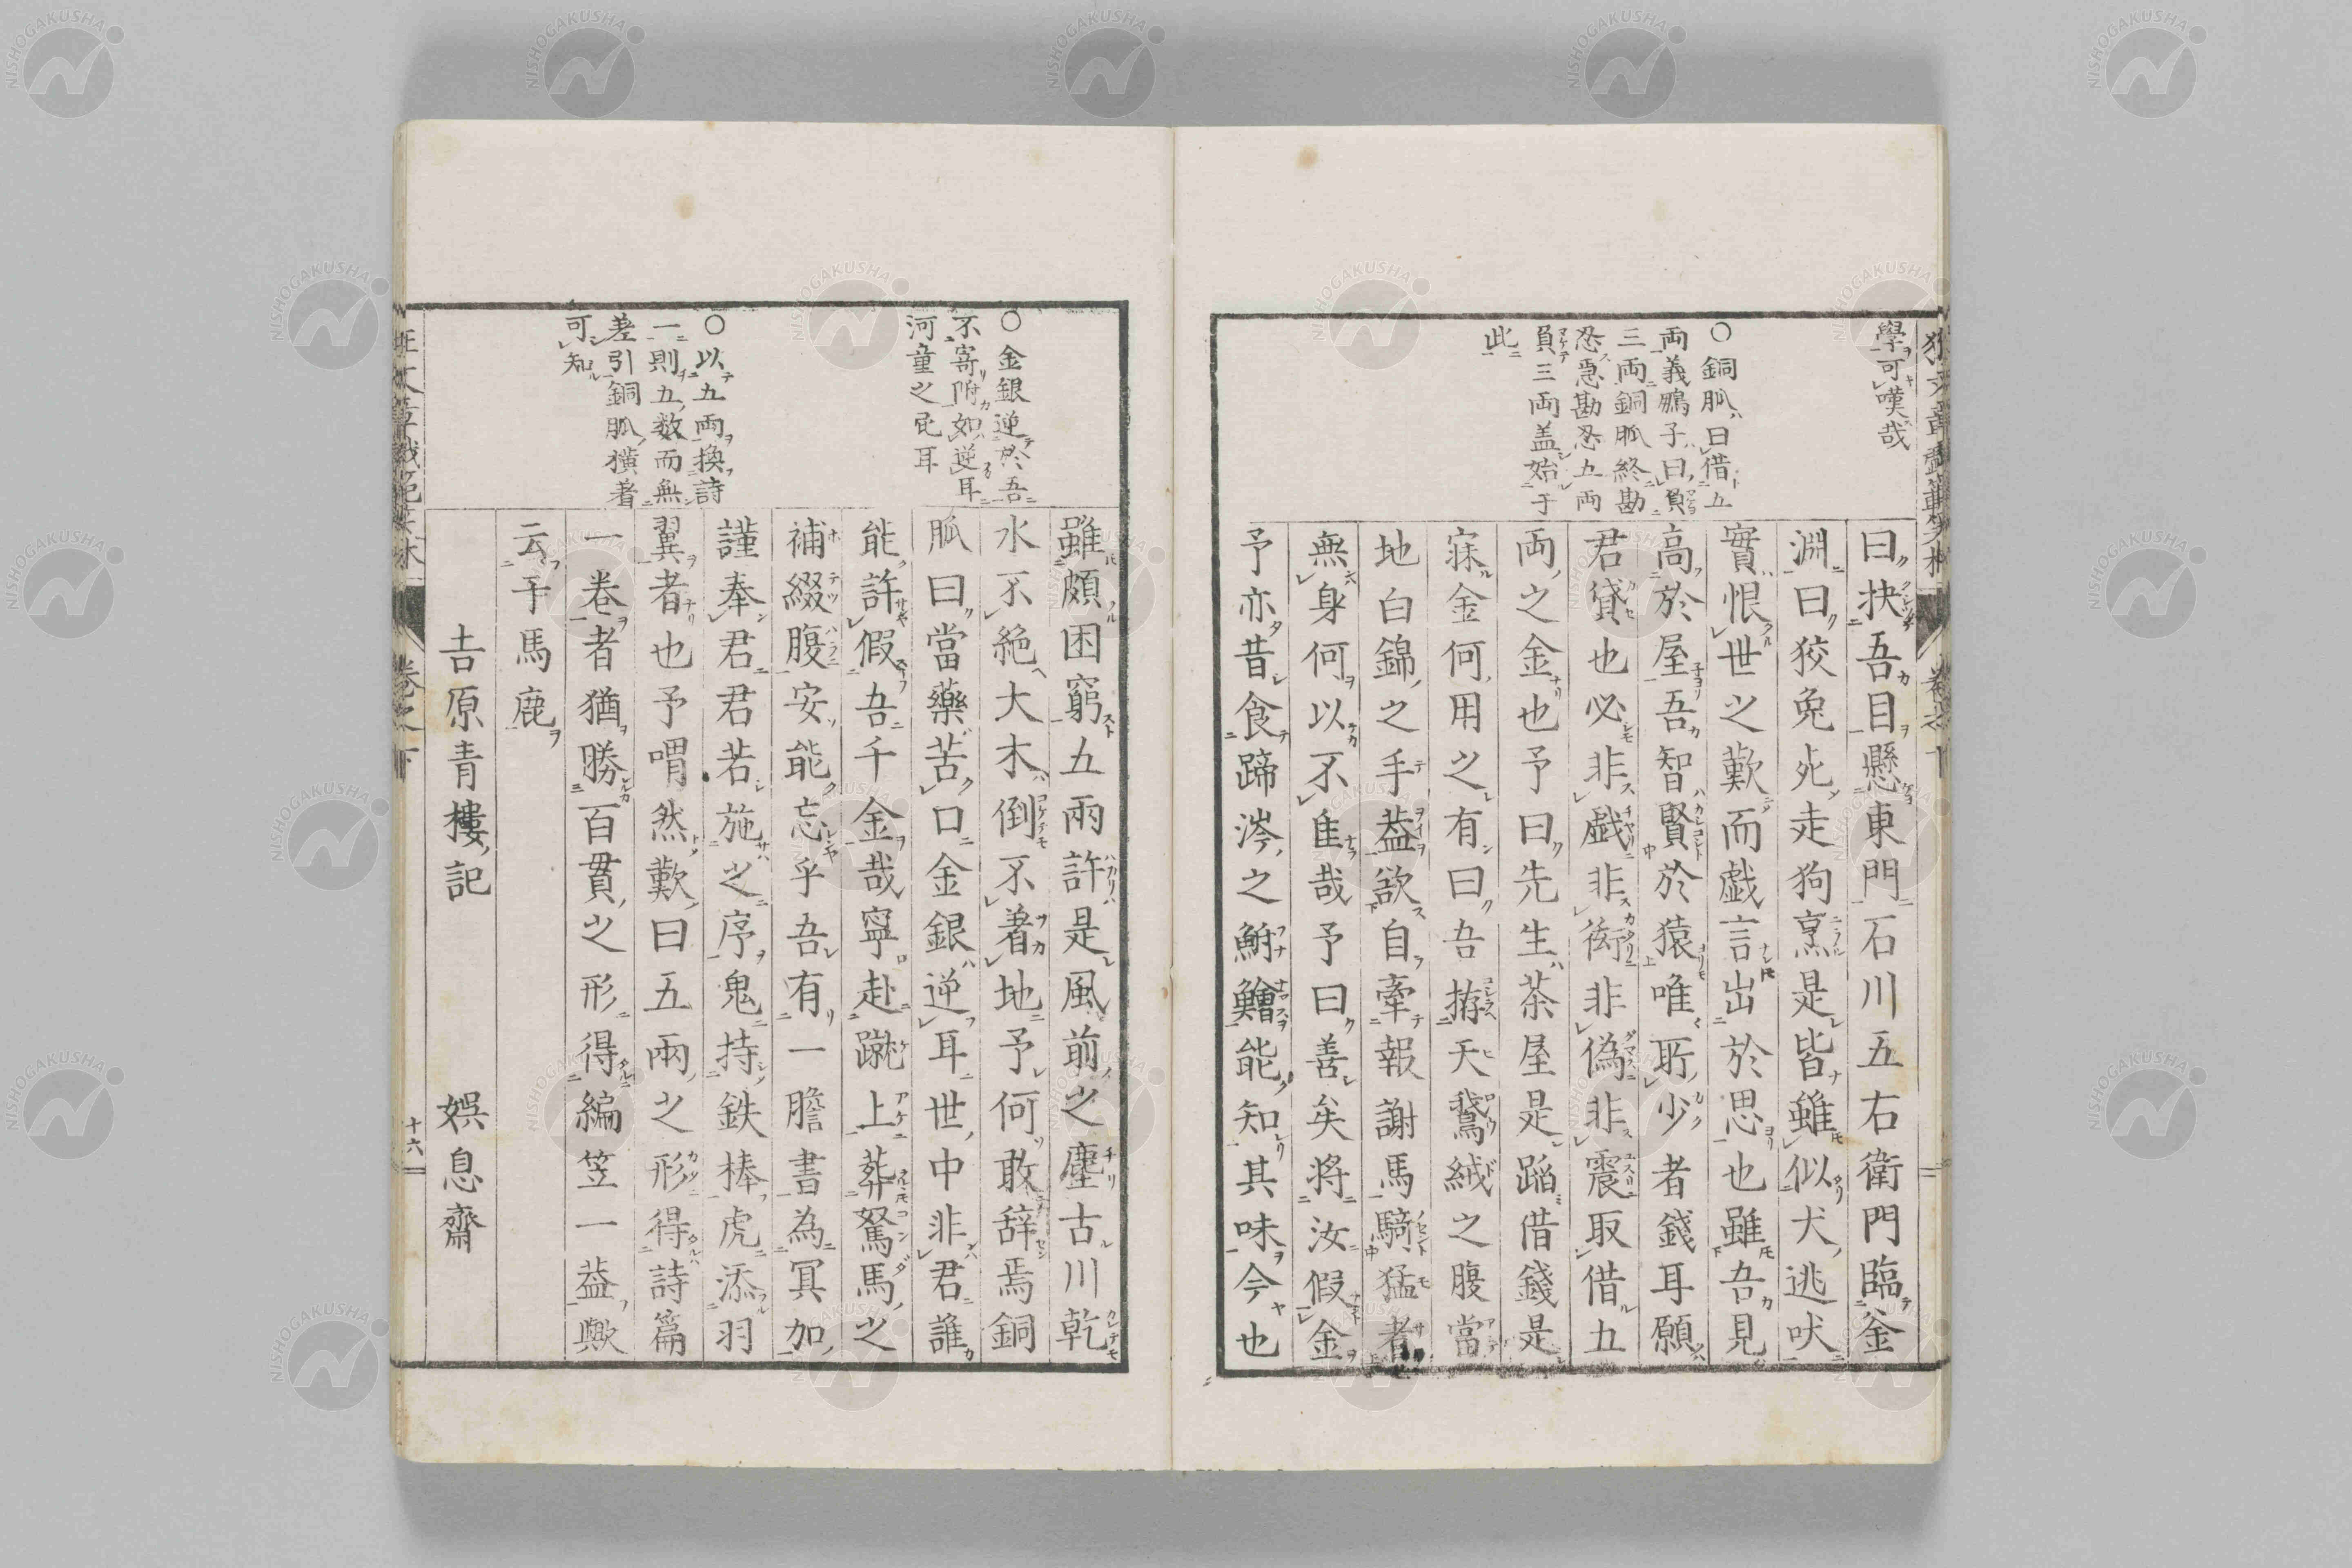 學可嘆哉
○銅脈曰借五
両義鵬子曰負
三両銅脈終勘
忍忽勘忍五両
負三両盖始于
此
曰抉吾目懸東門石川五右衛門臨釜
淵曰狡兔死走狗烹是皆雖似犬逃吠
實恨世之歎而戯言出於思也雖吾見
高於屋吾智賢於猿唯所少者錢耳願
君貸也必非戯非衒非偽非震取借五
両之金也予曰先生茶屋是蹈借錢是
寐金何用之有曰吾拵天鵞絨之腹當
地白錦之手葢欲自牽報謝馬騎猛者
無身何以不隹哉予曰善矣将汝假金
予亦昔食蹄涔之鮒鱠能知其味今也
○金銀逆於吾
不寄附如逆耳
河童之屁耳
○以五両換詩
一則五数而無
差引銅脈獚者
可知
雖頗困窮五兩許是風前之塵古川乾
水不絶大木倒不著地予何敢辞焉銅
脈曰當藥苦口金銀逆耳世中非君誰
能許假吾千金哉寧赴蹴上葬駑馬之
補綴腹安能忘乎吾有一膽書為冥加
謹奉君君若施之序鬼持鉄棒虎添羽
翼者也予喟然歎曰五兩之形得詩篇
一卷者猶勝百貫之形得編笠一葢歟
云予馬鹿
吉原青樓記
娯息齋
卷之下
十六
NISHOGAKUSHA